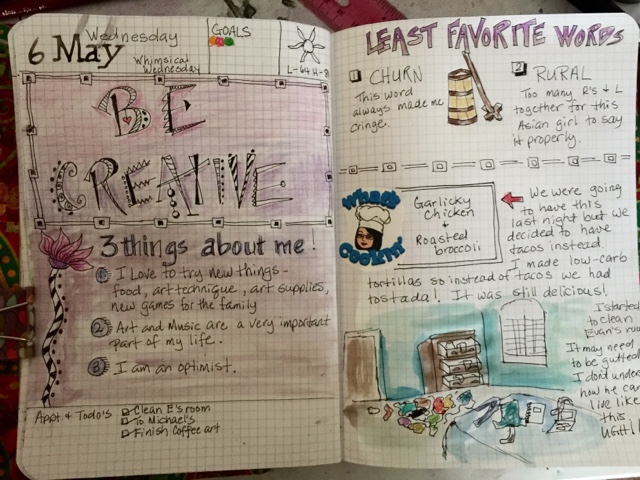 6 May
Wednesday
Whimsical
Wednesday
GOALS
L-64 H-8
BE
CREATIVE.
3 things about me!
1 I Love to try new things -
food, art technique, art supplies,
new games for the family
2 Art and Music are a very important
part of my life.
3 I am an optimist.
Appt & Todo's
Clean E's room
To Michael's
Finish Coffee art
LEAST FAVORITE WORDS
1 CHURN
This word
always made me
cringe.
2 RURAL
Too many R's & L
together for this
Asian girl to say
it properly.
What's
Cookin'
Garlicky
Chicken
+
Roasted
broccoli
We were going
to have this
last night but we
decided to have
tacos instead.
I made low-carb
tortillas so instead of tacos we had
tostada! It was still delicious!
I started
to clean
Evan's
It may need
to be gutted
I don't
how he can
live like
this
UGH!!